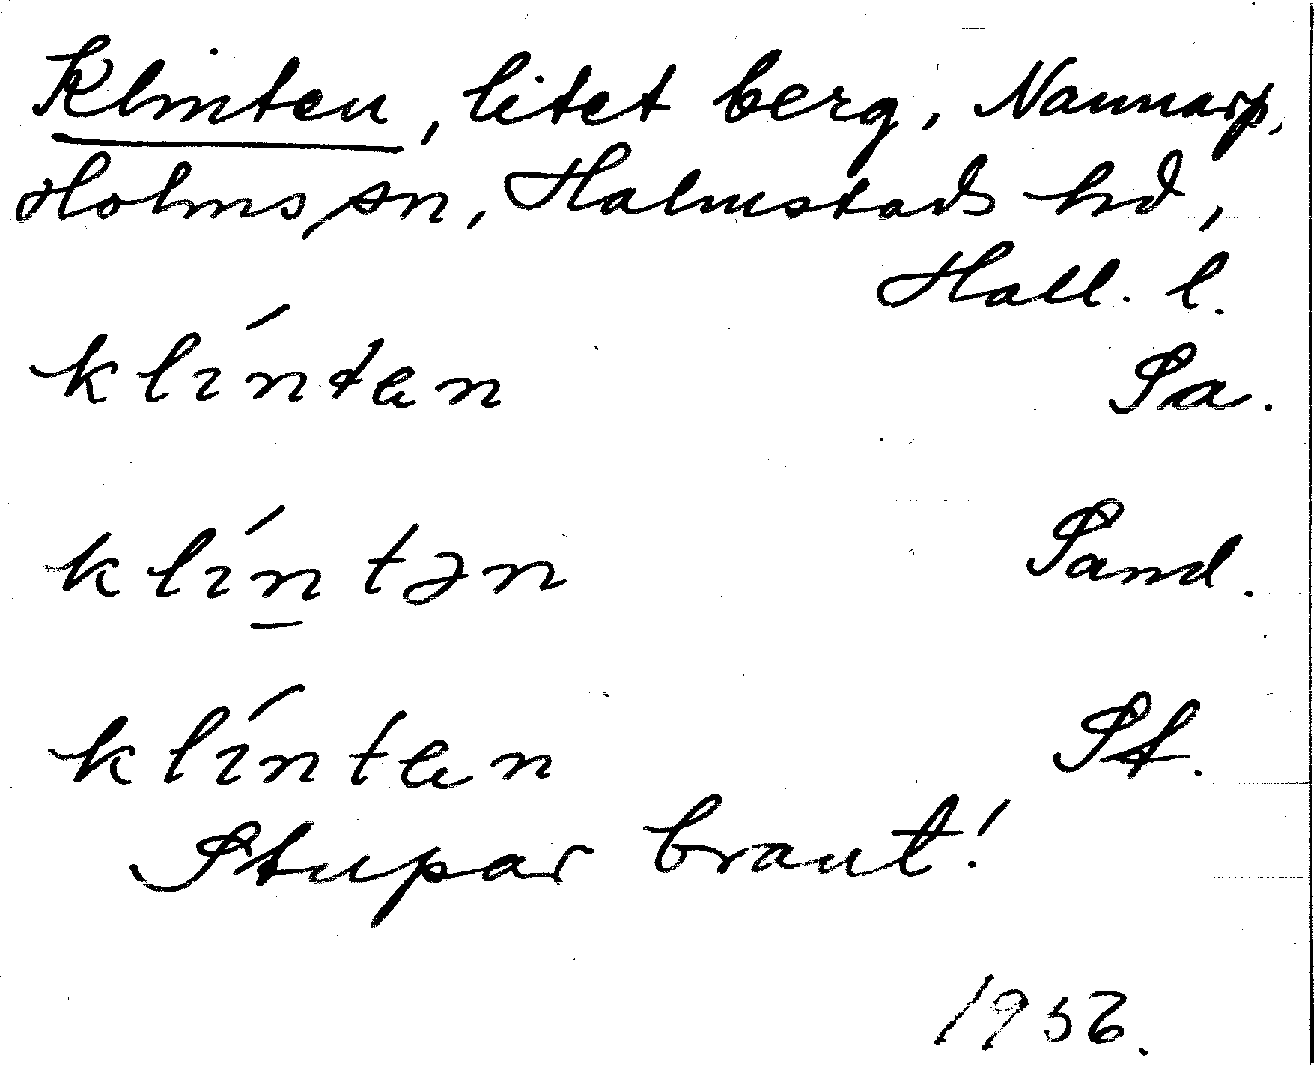 Klinten, litet berg, Nannarp,
Holms sn, Halmstads hd,
Hall. l.
klínten Sa.
klín̲tən Sand.
klínten St.
Stupar brant!
1936.